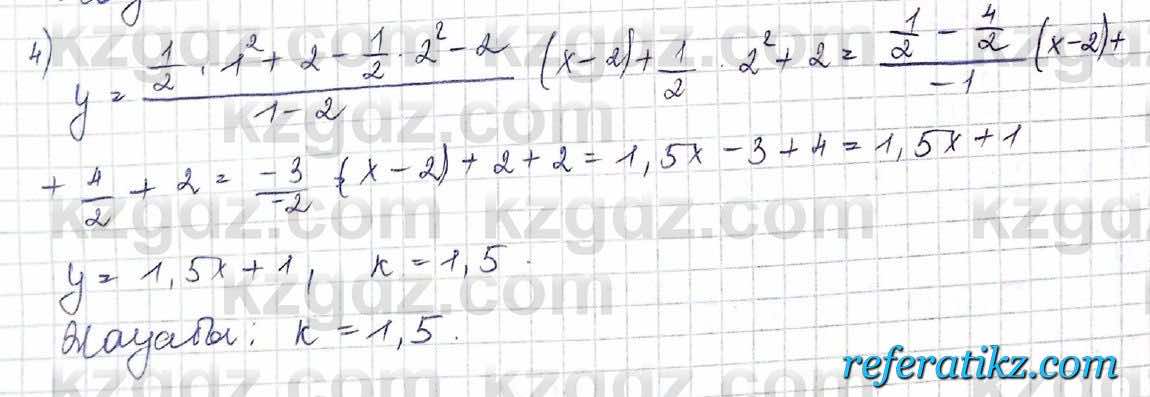 4) y = \frac{\frac{1}{2} \cdot 1^2 + 2 - \frac{1}{2} \cdot 2^2 - 2}{1 - 2} (x - 2) + \frac{1}{2} \cdot 2^2 + 2 = \frac{\frac{1}{2} - \frac{4}{2}}{-1} (x - 2) +
+ \frac{4}{2} + 2 = \frac{-3}{-2} (x - 2) + 2 + 2 = 1,5x - 3 + 4 = 1,5x + 1
y = 1,5x + 1, k = 1,5.
Жауабы: k = 1,5.
referatikz.com
kzgdz.com